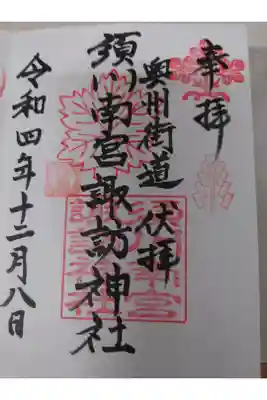 奉拝
奥州街道 伏拝
須川南宮諏訪神社
令和四年十二月八日